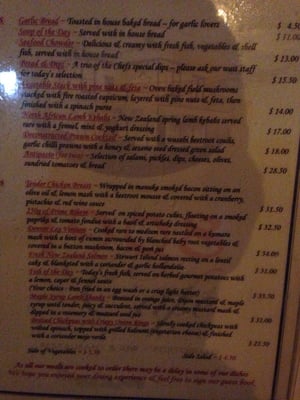 Garlic Bread - Toasted in house baked bread - for garlic lovers $ 4.50
Soup of the Day - Served with in house bread
Seafood Chowder - Delicious & creamy with fresh fish, vegetables & shell
fish, served with in house bread $ 13.00
Bread & Dips - A trio of the Chefs special dips - please ask our wait staff
for today's selection $ 15.50
Vegetable Stack with pine nuts & feta - Oven baked field mushrooms
stacked with fire roasted capsicum, layered with pine nuts & feta, then
finished with a spinach puree $ 14.00
North African Lamb Kebabs - New Zealand spring lamb kebabs served
rare with a fennel, mint & yoghurt dressing $ 17.00
Deconstructed Prawn Cocktail - Served with a wasabi beetroot coulis,
garlic chilli prawns with a honey & sesame seed dressed green salad $ 18.00
Antipasto (for two) - Selection of salami, pickles, dips, cheeses, olives,
sundried tomatoes & bread $ 28.50
Tender Chicken Breast - Wrapped in manuka smoked bacon sitting on an
olive oil & lemon mash with a beetroot mousse & covered with a cranberry,
pistachio & red wine sauce $ 31.50
250g of Prime Ribeye - Served on spiced potato cubes, floating on a smoked
paprika & tomato fondue with a basil & artichoke dressing $ 32.50
Denver Leg Venison - Cooked rare to medium rare nestled on a kumara
mash with a hint of cumin surrounded by blanched baby root vegetables &
covered in a button mushroom, bacon & port jus $ 34.00
Fresh New Zealand Salmon - Stewart Island salmon resting on a lentil
cake, & blanketed with a coriander & garlic hollandaise $ 31.00
Fish of the Day - Today's fresh fish, served on herbed gourmet potatoes with
a lemon, caper & fennel sauce
(Your choice - Pan fried in an egg wash or a crisp light batter) $ 33.50
Maple Syrup Lamb Shanks - Braised in orange juice, dijon mustard & maple
syrup until tender, juicy & succulent, served with a creamy mustard mash &
dipped in a rosemary & mustard seed jus $ 31.00
Roasted Chickpeas with Crispy Onion Rings - Slowly cooked chickpeas with
wilted spinach, topped with grilled haloumi (vegetarian cheese) & finished
with a coriander mojo verde $ 25.50
Side of Vegetables - $ 5.50 Side Salad - $ 4.50
As all our meals are cooked to order there may be a delay in some of our dishes
We hope you enjoyed your dining experience & feel free to sign our guest book